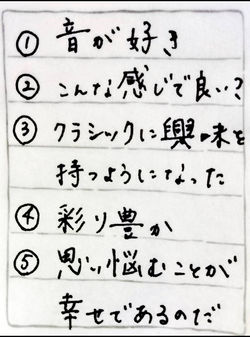 ① 音が好き
② こんな感じで良い?
③ クラシックに興味を
持つようになった
④ 彩り豊か
⑤ 思い悩むことが
幸せであるのだ